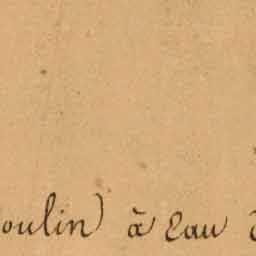 oulin) à Eau